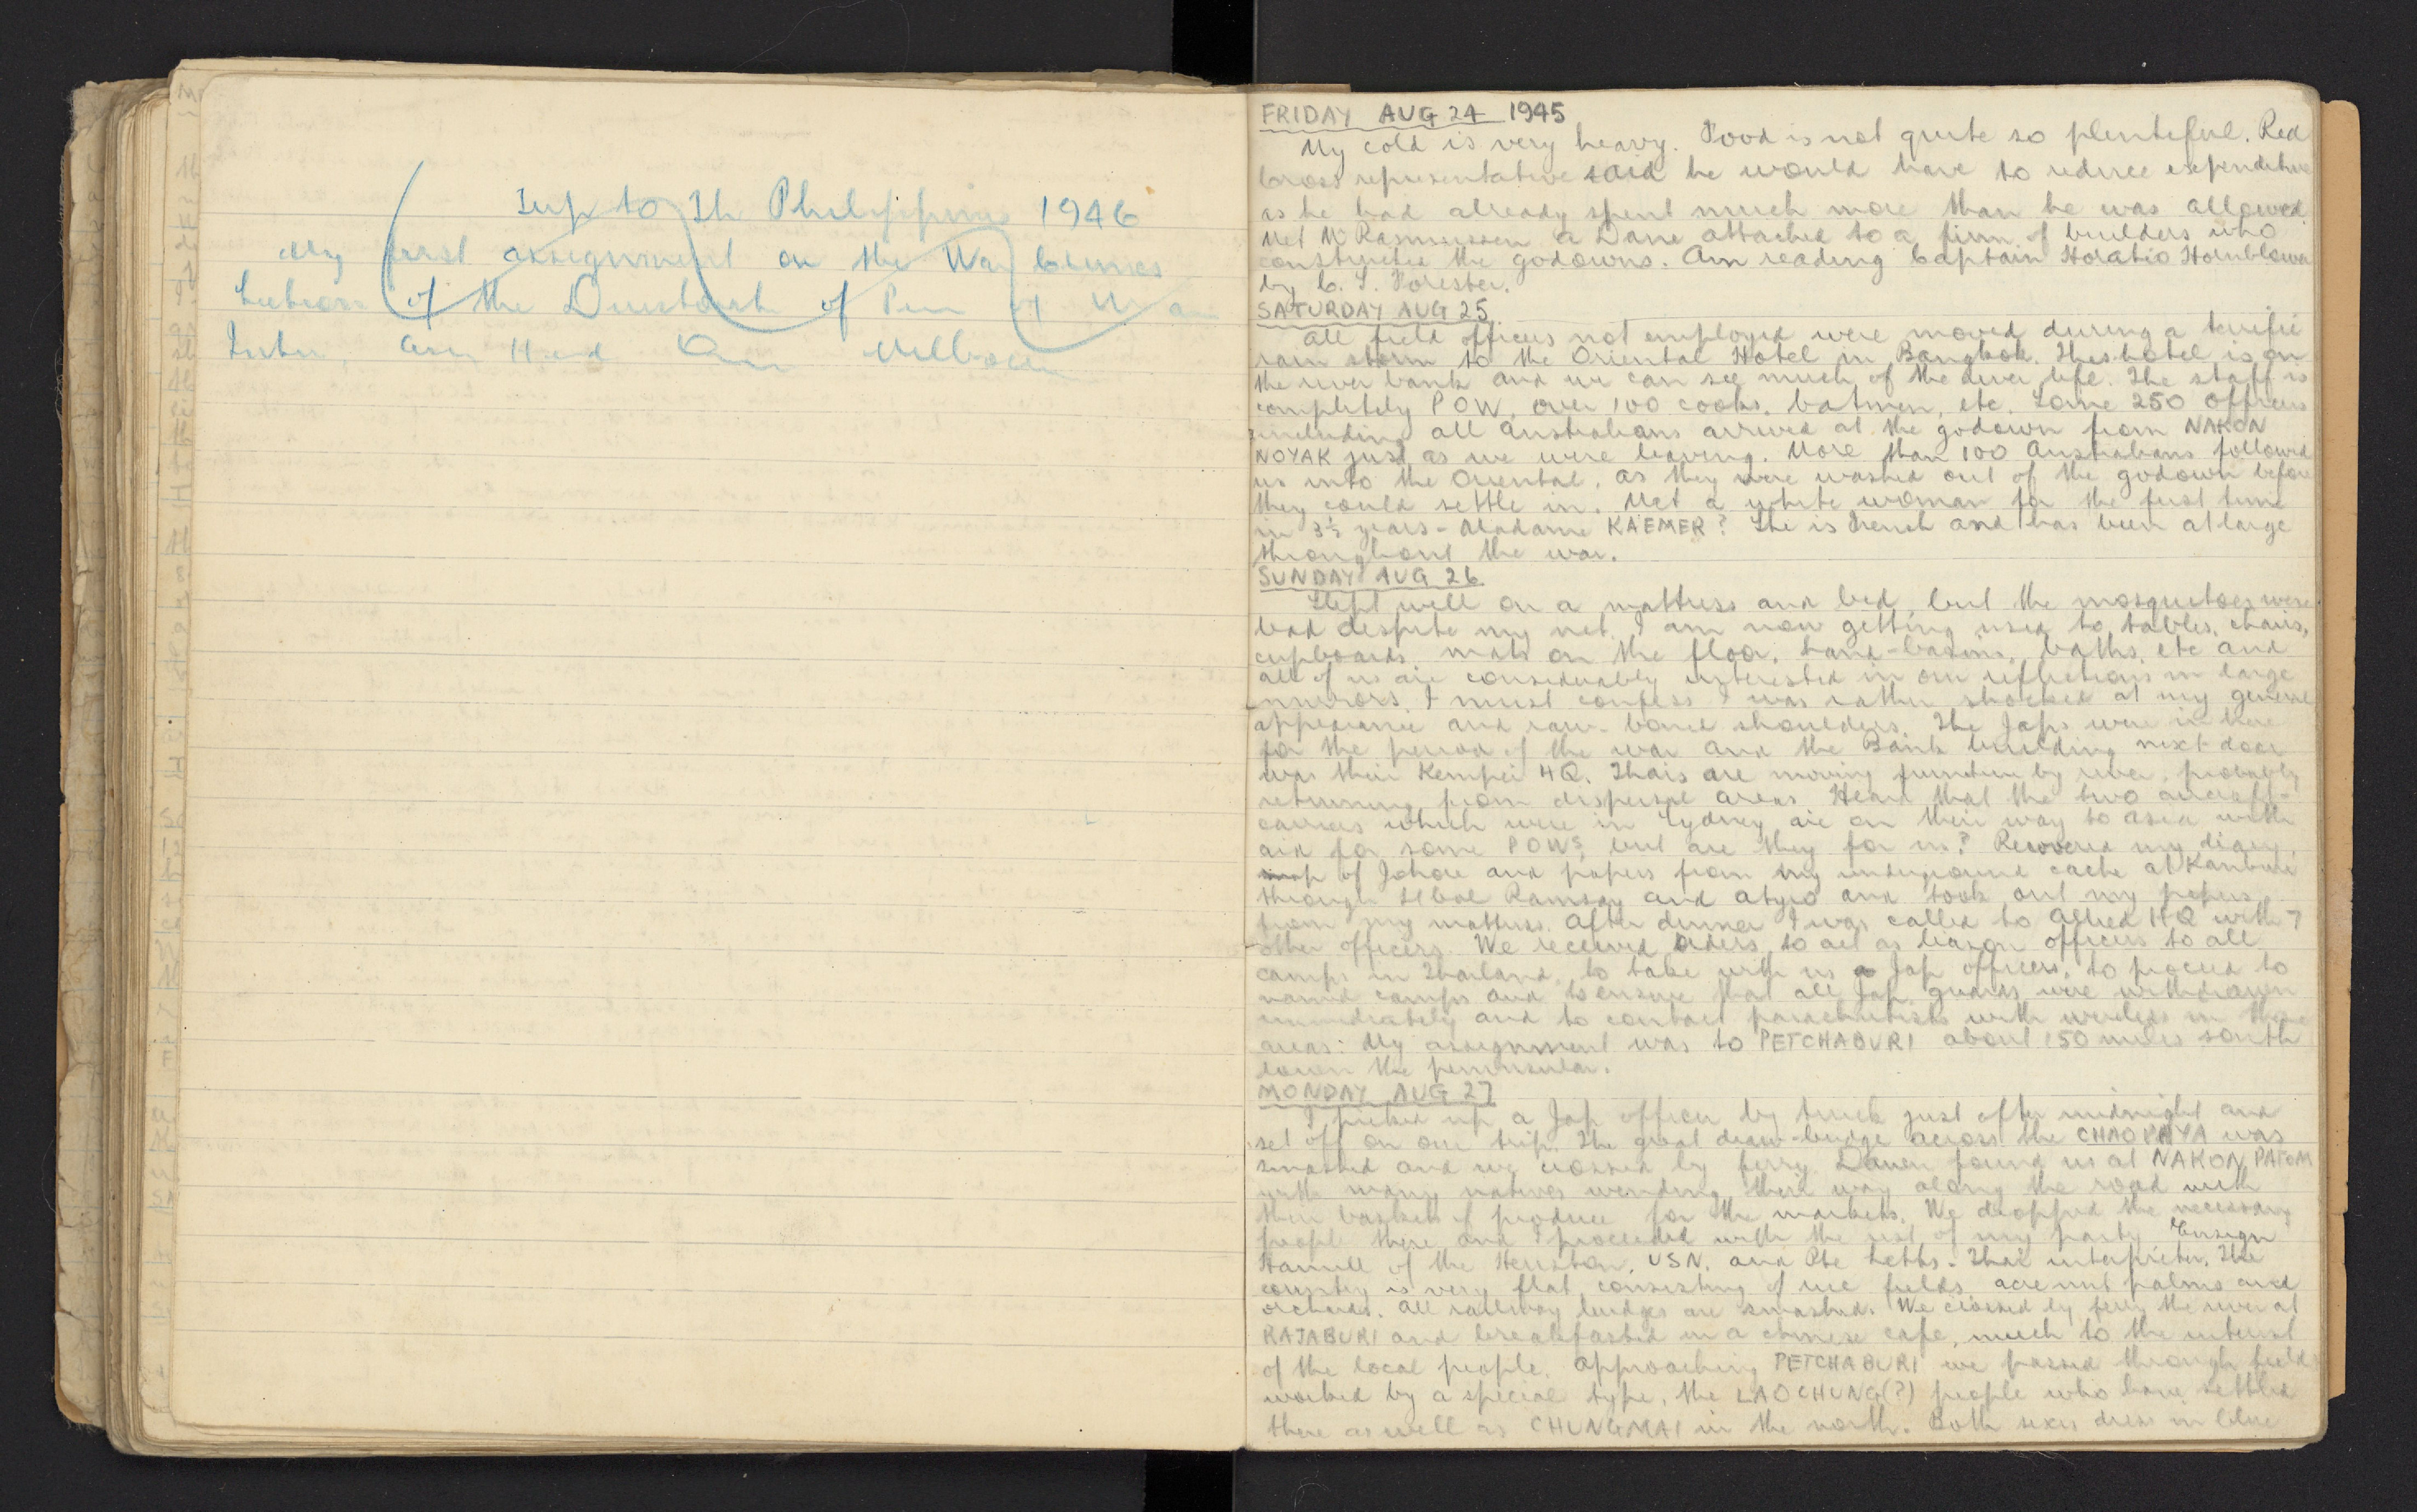 Trip to Th Philippines 1946
My first assignment on the War Crimes
Section of the Directorate of Prin of War
Inter, Army Head Melbourne
FRIDAY AUG 24 1945
My cold is very heavy. Food is not quite so plentiful. Red
Cross representative said he would have to reduce expenditure
as he had already spent much more than he was allowed.
Met Mr Rasmussen a Dane attached to a firm of builders who
constructed the godowns. Am reading Captain Horatio Hornblower
by C. S. Forester.
SATURDAY AUG 25.
All field officers not employed were moved during a terrific
rain storm to the Oriental Hotel in Bangkok. This hotel is on
the river bank and we can see much of the river life. The staff is
completely POW, over 100 cooks, batmen, etc. Some 250 officers
including all Australians arrived at the godown from NAKON
NOYAK just as we were leaving. More than 100 Australians followed
us into the Oriental, as they were washed out of the godown before
they could settle in. Met a white woman for the first time
in 3½ years - Madame KAEMER? She is French and has been at large
throughout the war.
SUNDAY AUG 26.
Slept well on a mattress and bed, but the mosquitoes were
bad despite my net. I am now getting used to tables, chairs,
cupboards, mats on the floor, hand-basins, baths, etc and
all of us are considerably interested in our reflections in large
mirrors. I must confess I was rather shocked at my general
appearance and raw-boned shoulders. The Japs were in here
for the period of the war and the Bank building next door
was their Kempei HQ. Thais are moving furniture by river, probably
returning from dispersal areas. Hear that the two aircraft-
carriers which were in Sydney are on their way to Asia with
aid for some POWs, but are they for us? Recovered my diary,
map of Johore and papers from my underground cache at Kanburi
through Ramsay and and took out my papers
from my mattress. After dinner I was called to Allied HQ with 7
other officers. We received orders to act as liaison officers to all
camps in Thailand, to take with us Jap officers, to proceed to
named camps and to ensure that all Jap guards were withdrawn
immediately and to contact parachutists with wireless in these
areas: My assignment was to PETCHABURI about 150 miles south
down the peninsular.
MONDAY AUG 27
I picked up a Jap officer by truck just after midnight and
set off on our trip. The great draw-bridge across the CHAOPAYA was
smashed and we crossed by ferry. Dawn found us at NAKON PATOM
with many natives wending their way along the road with
their baskets of produce for the markets. We dropped the necessary
people there and I proceeded with the rest of my party Ensign
of the Houston, USN, and Pte Letts - Thai interpreter. The
country is very flat, consisting of rice fields, acre nut palms and
orchards. All railway bridges are smashed. We crossed by ferry the river at
RAJABURI and breakfasted in a chinese cafe, much to the interest
of the local people. Approaching PETCHABURI we passed through fields
worked by a special type, the LAOCHUNG(?) people who have settled
there as well as CHUNGMAI in the north. Both sexes dress in blue